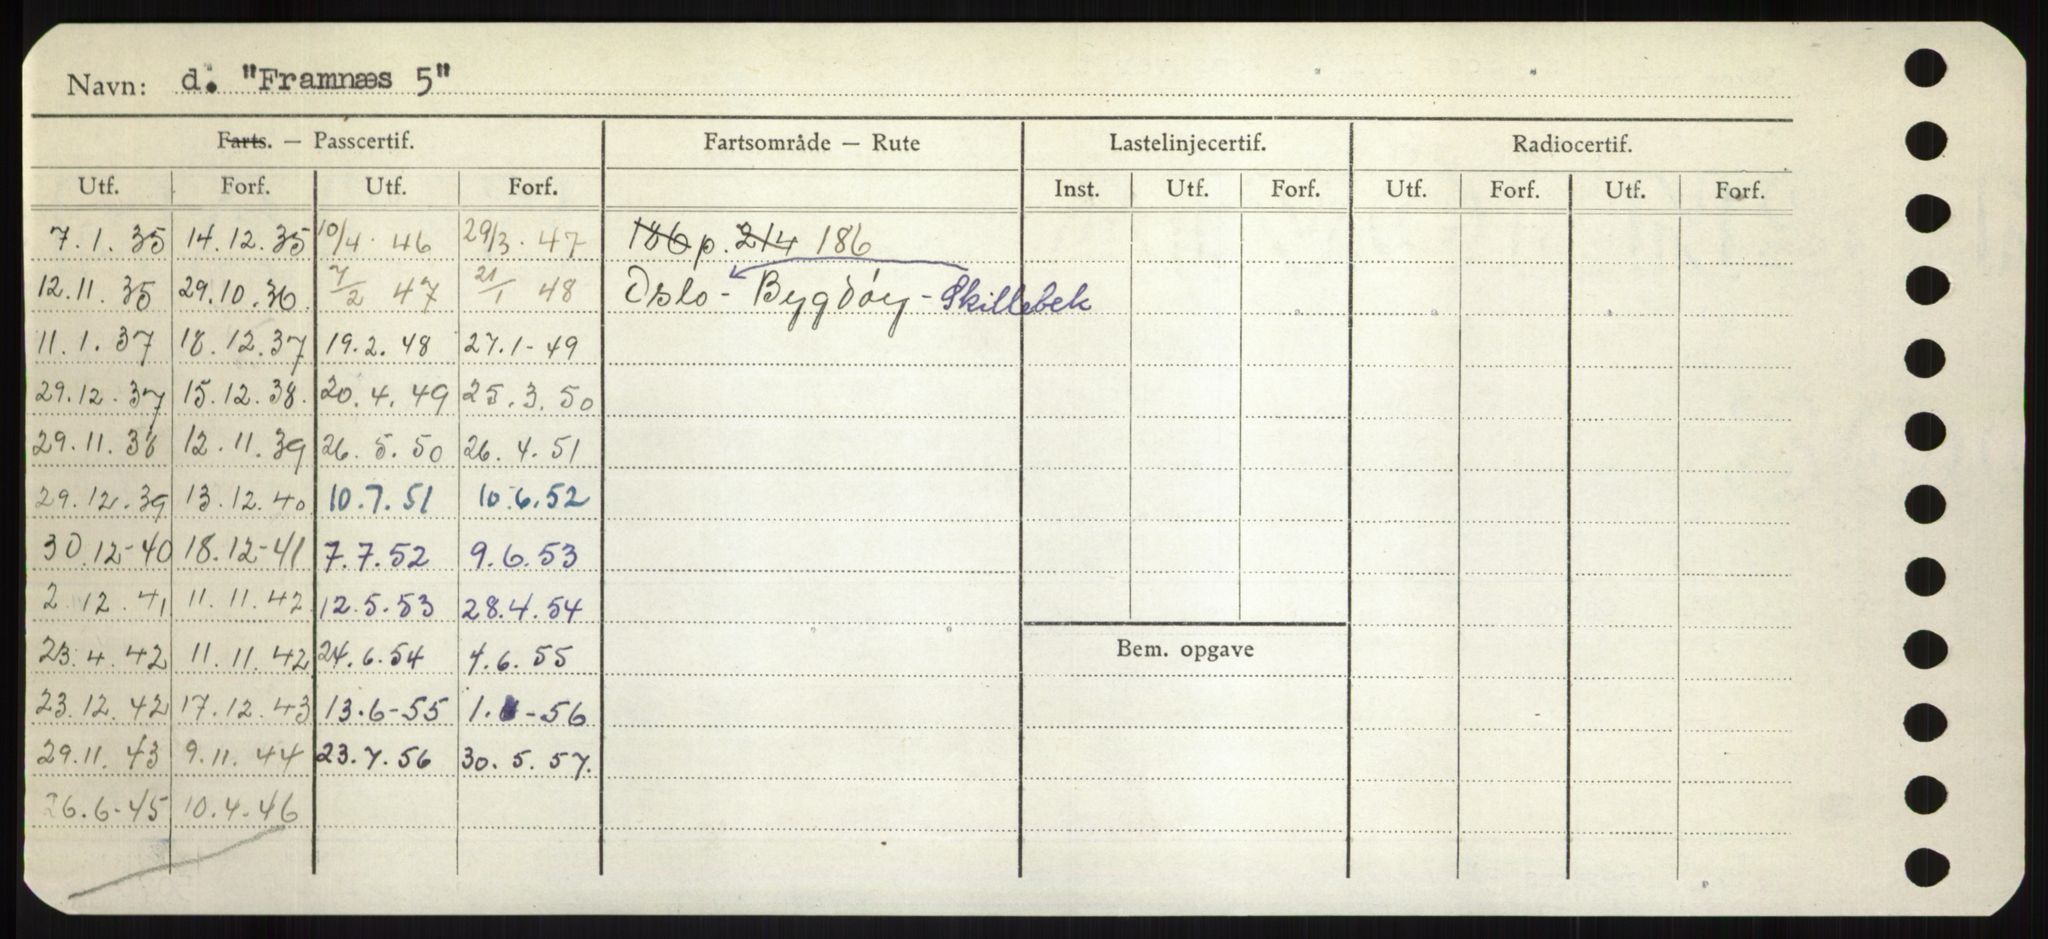 Navn: d. "Framnæs 5"
Farts. — Passcertif. Fartsområde — Rute Lastelinjecertif. Radiocertif.
Utf. Forf. Utf. Forf. Inst. Utf. Forf. Utf. Forf. Utf. Forf.
7.1.35 14.12.35 10/4.46 29/3.47 186 p. 214 186
12.11.35 29.10.36. 7/2 47 21/1 48 Oslo - Bygdöy - Skillebek
11.1.37 18.12.37 19.2.48 27.1-49
29.12.37 15.12.38. 20.4.49 25.3.50
29.11.38 12.11.39 26.5.50 26.4.51
29.12.39 13.12.40 10.7.51 10.6.52
30.12-40 18.12-41 7.7.52 9.6.53
2.12.41 11.11.42 12.5.53 28.4.54
23.4.42 11.11.42 24.6.54 4.6.55
Bem. opgave
23.12.42 17.12.43 13.6-55 1. -56
29.11.43 9.11.44 23.7.56 30.5.57.
26.6-45 10.4-46